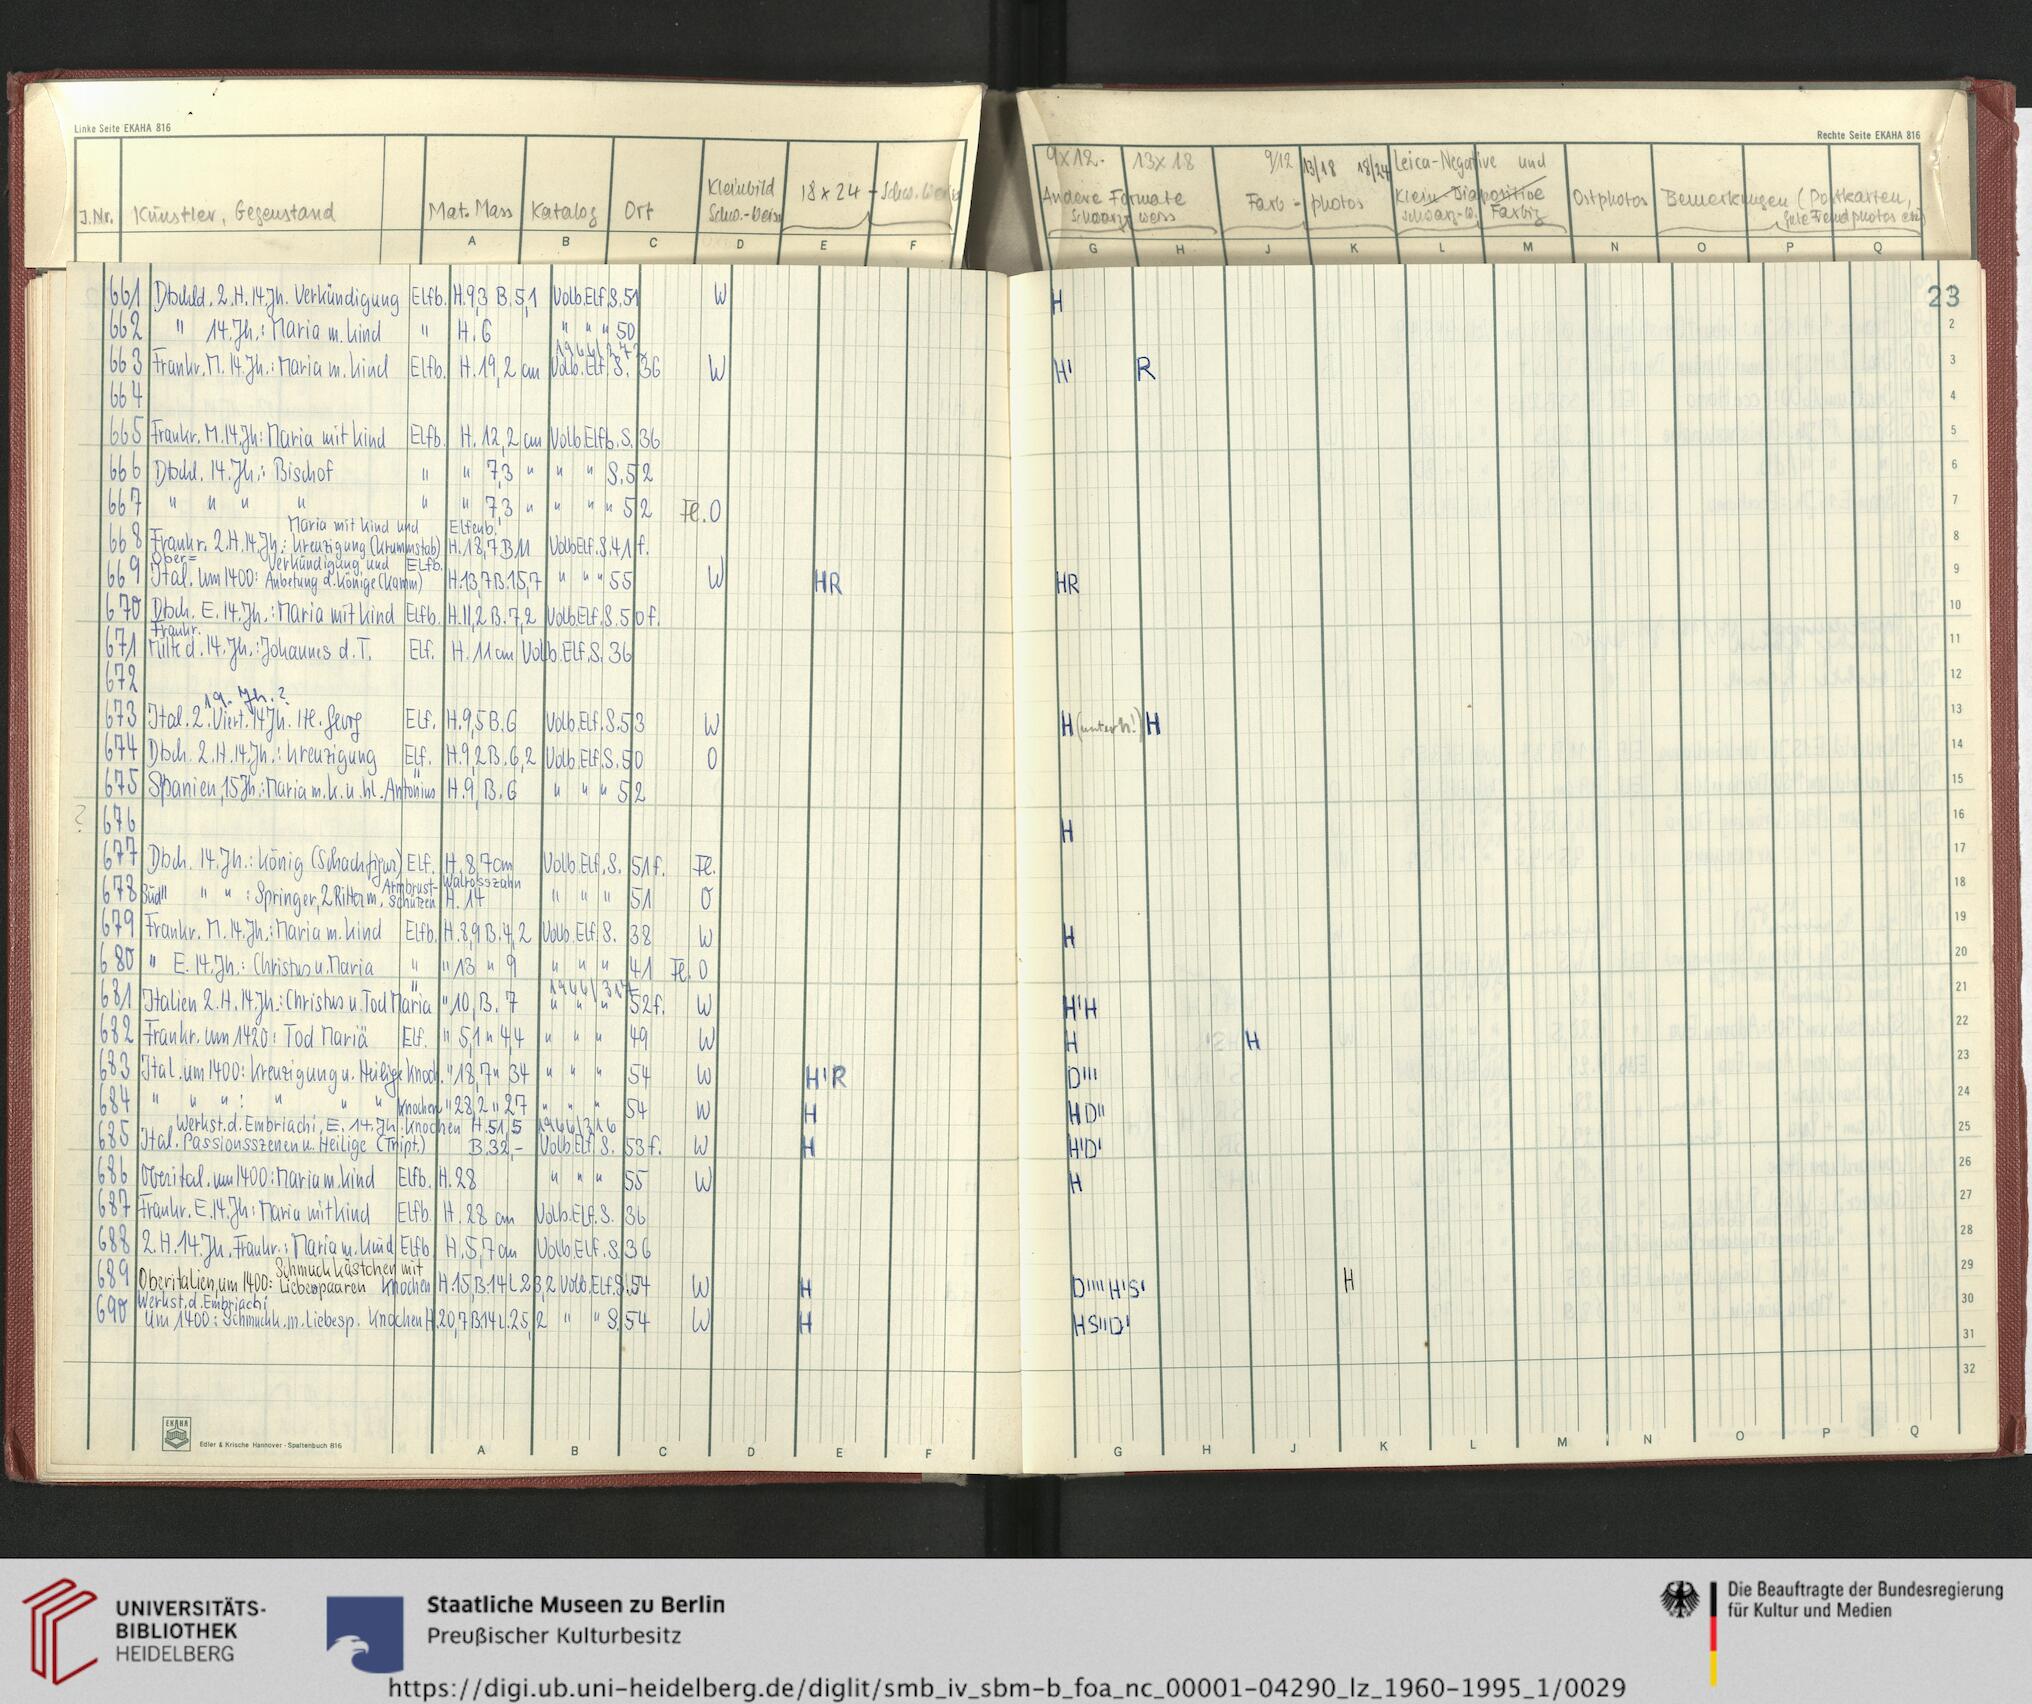 Linke Seite EKAHA 816
Rechte Seite EKAHA 816
J.Nr. Künstler, Gegenstand Mat. Mass Katalog Ort Kleinbild Schw.-Weiss 18 x 24 - Schw. Weiss
A B C D E F
9x12. 13x18 9/12 13/18 18/24 Leica-Negative und
Andere Formate Farb - photos Klein-Diapositive Ostphotos Bemerkungen (Postkarten,
Schwarz weiss Schwarz-w. Farbig gute Fremdphotos etc)
G H J K L M N O P Q
23
661 Dtschld. 2.H.14.Jh. Verkündigung Elfb. H.9,3 B.5,1 Volb.Elf.S.51 W H
662 " 14.Jh.: Maria m. Kind " H.6 " " " 50 2
663 Frankr. M.14.Jh.: Maria m. Kind Elfb. H.19,2 cm Volb.Elf.S. 36 W H' R 3
664 4
665 Frankr. M.14.Jh: Maria mit Kind Elfb. H. 12,2 cm Volb.Elfb.S. 36 5
666 Dtschl. 14.Jh.: Bischof " " 7,3 " " " S.52 6
667 " " " " " " 7,3 " " " " 52 Fe. O 7
Maria mit Kind und Elfenb.
668 Frankr. 2.H.14.Jh.: Kreuzigung (Krummstab) H.18,7 B 11 Volb Elf.S.41f. 8
Ober= Verkündigung und Elfb.
669 Ital. um 1400: Anbetung d. Könige (Kamm) H.13,7 B.15,7 " " " 55 W HR HR 9
670 Dtsch. E.14.Jh.: Maria mit Kind Elfb. H.11,2 B.7,2 Volb.Elf.S.50f. 10
Frankr.
671 Mitte d. 14.Jh.: Johannes d.T. Elf. H. 11 cm Volb.Elf.S. 36 11
672 12
19. Jh.?
673 Ital. 2. Viert. 14 Jh. Hl. Georg Elf. H.9,5 B.6 Volb.Elf.S.53 W H (unter H!) H 13
674 Dtsch. 2.H.14.Jh.: Kreuzigung Elf. H.9,2 B.6,2 Volb.Elf.S.50 O 14
675 Spanien, 15Jh: Maria m.K.u.hl. Antonius " H.9, B.6 " " " 52 15
? 676 H 16
677 Dtsch. 14.Jh.: König (Schachfigur) Elf. H.8,7cm Volb.Elf.S. 51f. Fe. 17
Armbrust- Walrosszahn
678 Süd" " " : Springer, 2 Ritter m. schützen H.14 " " " 51 O 18
679 Frankr. M.14.Jh.: Maria m. Kind Elfb. H.8,9 B.4,2 Volb.Elf.S. 38 W H 19
680 " E.14.Jh.: Christus u. Maria " " 13 " 9 " " " 41 Fe. O 20
681 Italien 2.H.14.Jh.: Christus u. Tod Maria " " 10, B.7 " " " 52f. W H'H 21
682 Frankr. um 1420: Tod Mariä Elf. " 5,1 " 4,4 " " " 49 W H H 22
683 Ital. um 1400: Kreuzigung u. Heilige Knoch. " 18,7 " 34 " " " 54 W H'R D''' 23
684 " " " : " " " Knochen " 28,2 " 27 " " " 54 W H HD'' 24
Werkst. d. Embriachi, E. 14.Jh. Knochen H.51,5 1966/316
685 Ital. Passionsszenen u. Heilige (Tript.) B.32,- Volb.Elf.S. 53f. W H H'D' 25
686 Oberital. um 1400: Maria m. Kind Elfb. H.28 " " " 55 W H 26
687 Frankr. E.14.Jh: Maria mit Kind Elfb. H. 28 cm Volb.Elf.S. 36 27
688 2.H.14.Jh. Frankr.: Maria m. Kind Elfb. H.5,7cm Volb.Elf.S. 36 28
Schmuckkästchen mit
689 Oberitalien, um 1400: Liebespaaren Knochen H.15,B.14 L 23,2 Volb.Elf.S.54 W H D''''H'S' H 29
Werkst. d. Embriachi
690 Um 1400: Schmuckk. m. Liebesp. Knochen H.20,7 B.14 L.25,2 " " S.54 W H HS''D' 30
31
32
EKAHA
Edler & Krische Hannover - Spaltenbuch 816
A B C D E F G H J K L M N O P Q
UNIVERSITÄTS-
BIBLIOTHEK
HEIDELBERG
Staatliche Museen zu Berlin
Preußischer Kulturbesitz
Die Beauftragte der Bundesregierung
für Kultur und Medien
https://digi.ub.uni-heidelberg.de/diglit/smb_iv_sbm-b_foa_nc_00001-04290_lz_1960-1995_1/0029